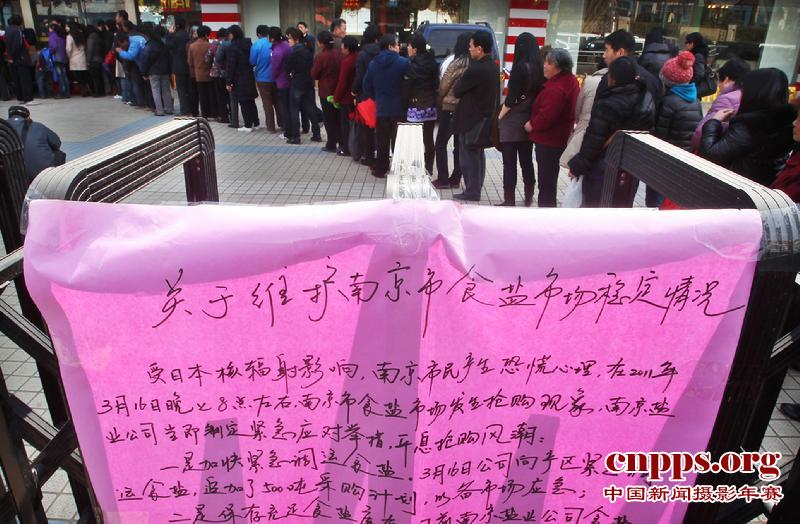 关于维护南京市食盐市场稳定情况
受日本核辐射影响,南京市民产生恐慌心理,在2011年
3月16日晚上8点左右,南京市食盐市场发生抢购现象,南京盐
业公司立即制定紧急应对举措,平息抢购风潮:
一是加快紧急调运食盐。3月16日公司向产区紧
运食盐,追加了500吨采购计划,以备市场应急;
二是保存充足食盐库存
前南京盐业公司食
cnpps.org
中国新闻摄影年赛